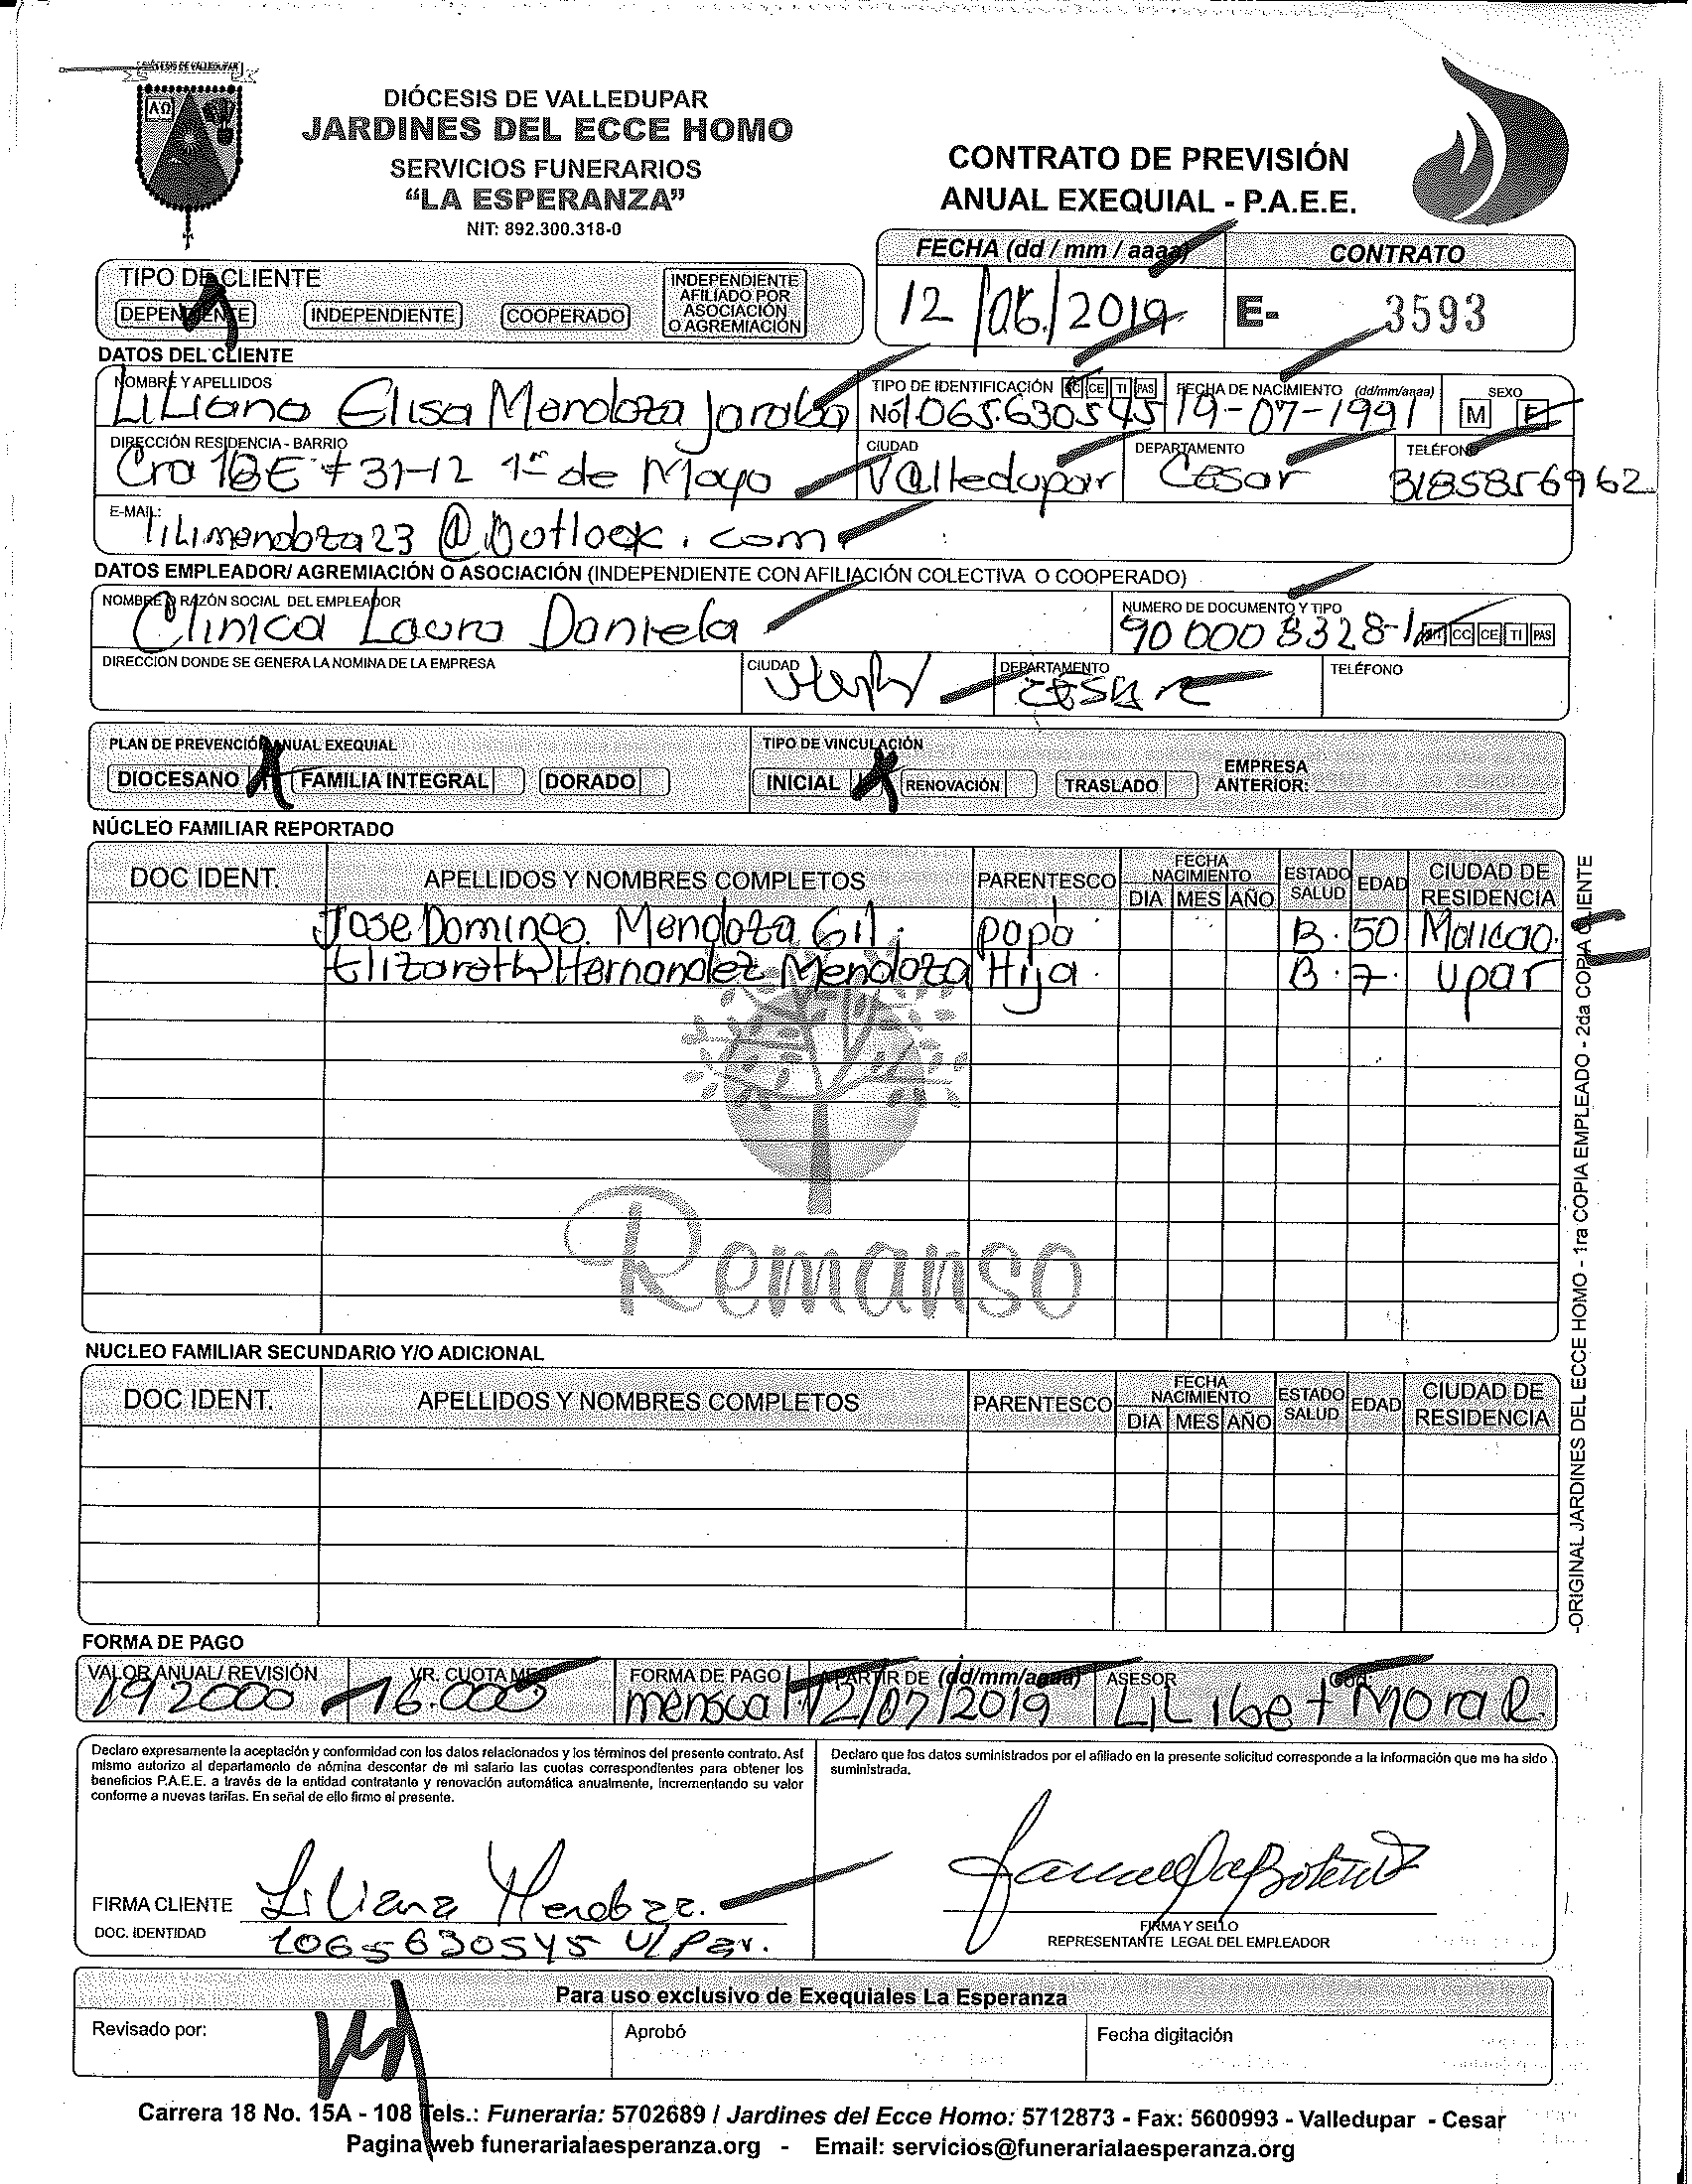 DIÓCESIS DE VALLEDUPAR
DIÓCESIS DE VALLEDUPAR
JARDINES DEL ECCE HOMO
SERVICIOS FUNERARIOS
“LA ESPERANZA”
NIT: 892.300.318-0
CONTRATO DE PREVISIÓN
ANUAL EXEQUIAL - P.A.E.E.
FECHA (dd / mm / aaaa) CONTRATO
12/06/2019 E- 3593
TIPO DE CLIENTE
DEPENDIENTE INDEPENDIENTE COOPERADO INDEPENDIENTE AFILIADO POR ASOCIACIÓN O AGREMIACIÓN
DATOS DEL CLIENTE
NOMBRE Y APELLIDOS TIPO DE IDENTIFICACIÓN CC CE TI PAS FECHA DE NACIMIENTO (dd/mm/aaaa) SEXO
Liliana Elisa Mendoza Jaraba No 1065.630545 19-07-1991 M F
DIRECCIÓN RESIDENCIA - BARRIO CIUDAD DEPARTAMENTO TELÉFONO
Cra 18E # 31-12 1º de Mayo Valledupar Cesar 3185856962
E-MAIL:
lilimendoza23 @ outlook.com
DATOS EMPLEADOR/ AGREMIACIÓN O ASOCIACIÓN (INDEPENDIENTE CON AFILIACIÓN COLECTIVA O COOPERADO)
NOMBRE O RAZÓN SOCIAL DEL EMPLEADOR NUMERO DE DOCUMENTO Y TIPO
Clinica Laura Daniela 900008328-1 NIT CC CE TI PAS
DIRECCION DONDE SE GENERA LA NOMINA DE LA EMPRESA CIUDAD DEPARTAMENTO TELÉFONO
CESAR
PLAN DE PREVENCIÓN ANUAL EXEQUIAL TIPO DE VINCULACIÓN
DIOCESANO FAMILIA INTEGRAL DORADO INICIAL RENOVACIÓN TRASLADO EMPRESA ANTERIOR:
NÚCLEO FAMILIAR REPORTADO
DOC IDENT. APELLIDOS Y NOMBRES COMPLETOS PARENTESCO FECHA NACIMIENTO DIA MES AÑO ESTADO SALUD EDAD CIUDAD DE RESIDENCIA
Jose Domingo Mendoza Gil. papá B. 50 Maicao.
Elizabeth Hernandez Mendoza Hija. B. 7. Upar
Remanso
NUCLEO FAMILIAR SECUNDARIO Y/O ADICIONAL
DOC IDENT. APELLIDOS Y NOMBRES COMPLETOS PARENTESCO FECHA NACIMIENTO DIA MES AÑO ESTADO SALUD EDAD CIUDAD DE RESIDENCIA
-ORIGINAL JARDINES DEL ECCE HOMO - 1ra COPIA EMPLEADO - 2da COPIA CLIENTE
FORMA DE PAGO
VALOR ANUAL/ REVISIÓN VR. CUOTA MES FORMA DE PAGO A PARTIR DE (dd/mm/aaaa) ASESOR COD.
192000 16.000 mensual 12/07/2019 Lilibet Mora R.
Declaro expresamente la aceptación y conformidad con los datos relacionados y los términos del presente contrato. Así
mismo autorizo al departamento de nómina descontar de mi salario las cuotas correspondientes para obtener los
beneficios P.A.E.E. a través de la entidad contratante y renovación automática anualmente, incrementando su valor
conforme a nuevas tarifas. En señal de ello firmo el presente.
Declaro que los datos suministrados por el afiliado en la presente solicitud corresponde a la información que me ha sido
suministrada.
FIRMA CLIENTE Liliana Mendoza.
DOC. IDENTIDAD 1065630545 V/Par.
FIRMA Y SELLO
REPRESENTANTE LEGAL DEL EMPLEADOR
Para uso exclusivo de Exequiales La Esperanza
Revisado por: Aprobó Fecha digitación
Carrera 18 No. 15A - 108 Tels.: Funeraria: 5702689 / Jardines del Ecce Homo: 5712873 - Fax: 5600993 - Valledupar - Cesar
Pagina web funerarialaesperanza.org - Email: servicios@funerarialaesperanza.org